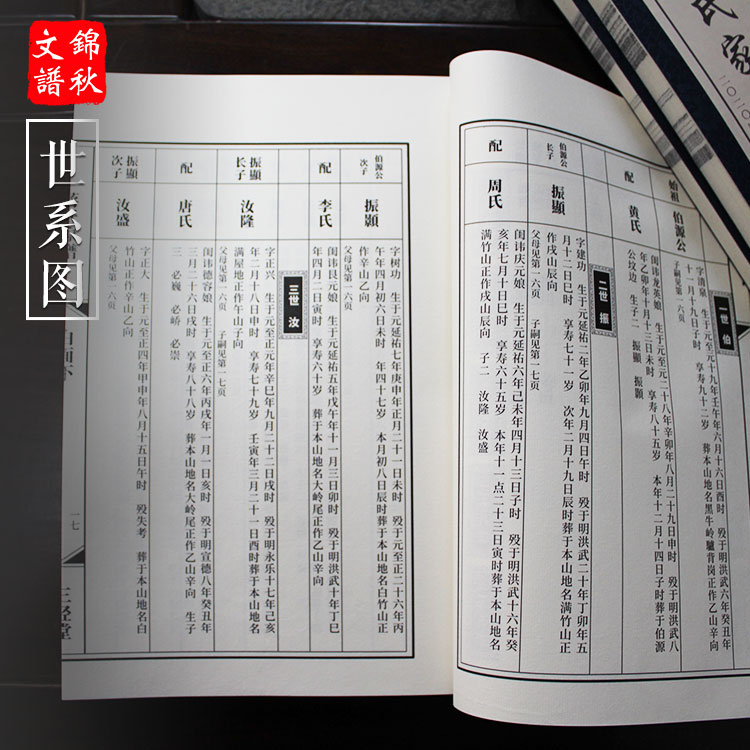 錦秋
文譜
世系图
氏家
一世 伯
始祖 伯源公
字清泉 生于元十九年壬午年六月十六日酉时 殁于明洪武六年癸丑年
十一月十九日子时 享寿九十二岁 葬于本山地名黑牛岭驢背岗正作乙山辛向
子嗣见第一六页
配 黄氏
闺讳龙英娘 生于元二十八年辛卯年八月二十九日申时 殁于明洪武八
年乙卯年十月十三日未时 享寿八十五岁 本年十二月十四日子时葬于伯源
公坟边 生子二 振顯 振顥
二世 振
伯源公
长子
振顯
字建功 生于元延祐二年乙卯年九月四日午时 殁于明洪武二十年丁卯年五
月十二日巳时 享寿七十一岁 次年二月十九日辰时葬于本山地名满竹山正
作戌山辰向
父母见第一六页 子嗣见第一七页
配 周氏
闺讳庆元娘 生于元延祐六年己未年四月十三日子时 殁于明洪武十六年癸
亥年七月十日巳时 享寿六十五岁 本年十一点二十三日寅时葬于本山地名
满竹山正作戌山辰向 子二 汝隆 汝盛
伯源公
次子
振顥
字树功 生于元延祐七年庚申年正月二十一日未时 殁于元至正二十六年丙
午年四月初六日未时 年四十七岁 本月初八日辰时葬于本山地名白竹山正
作辛山乙向
父母见第一六页
配 李氏
闺讳良元娘 生于元延祐五年戊午年十一月三日卯时 殁于明洪武十年丁巳
年四月二日寅时 享寿六十岁 葬于本山地名大岭尾正作乙山辛向
三世 汝
振顯
长子
汝隆
字正兴 生于元至正元年辛巳年九月二十二日戌时 殁于明永乐十七年己亥
年二月十八日申时 享寿七十九岁 壬寅年三月二十一日酉时葬于本山地名
满屋地正作午山子向
父母见第一六页
配 唐氏
闺讳德容娘 生于元至正六年丙戌年一月一日亥时 殁于明宣德八年癸丑年
三月二十六日戌时 享寿八十八岁 葬本山地名大岭尾正作乙山辛向 生子
三 必巍 必峤 必崇
振顯
次子
汝盛
字正大 生于元至正四年甲申年八月十五日午时 殁失考 葬于本山地名白
竹山正作辛山乙向
父母见第一六页
一七